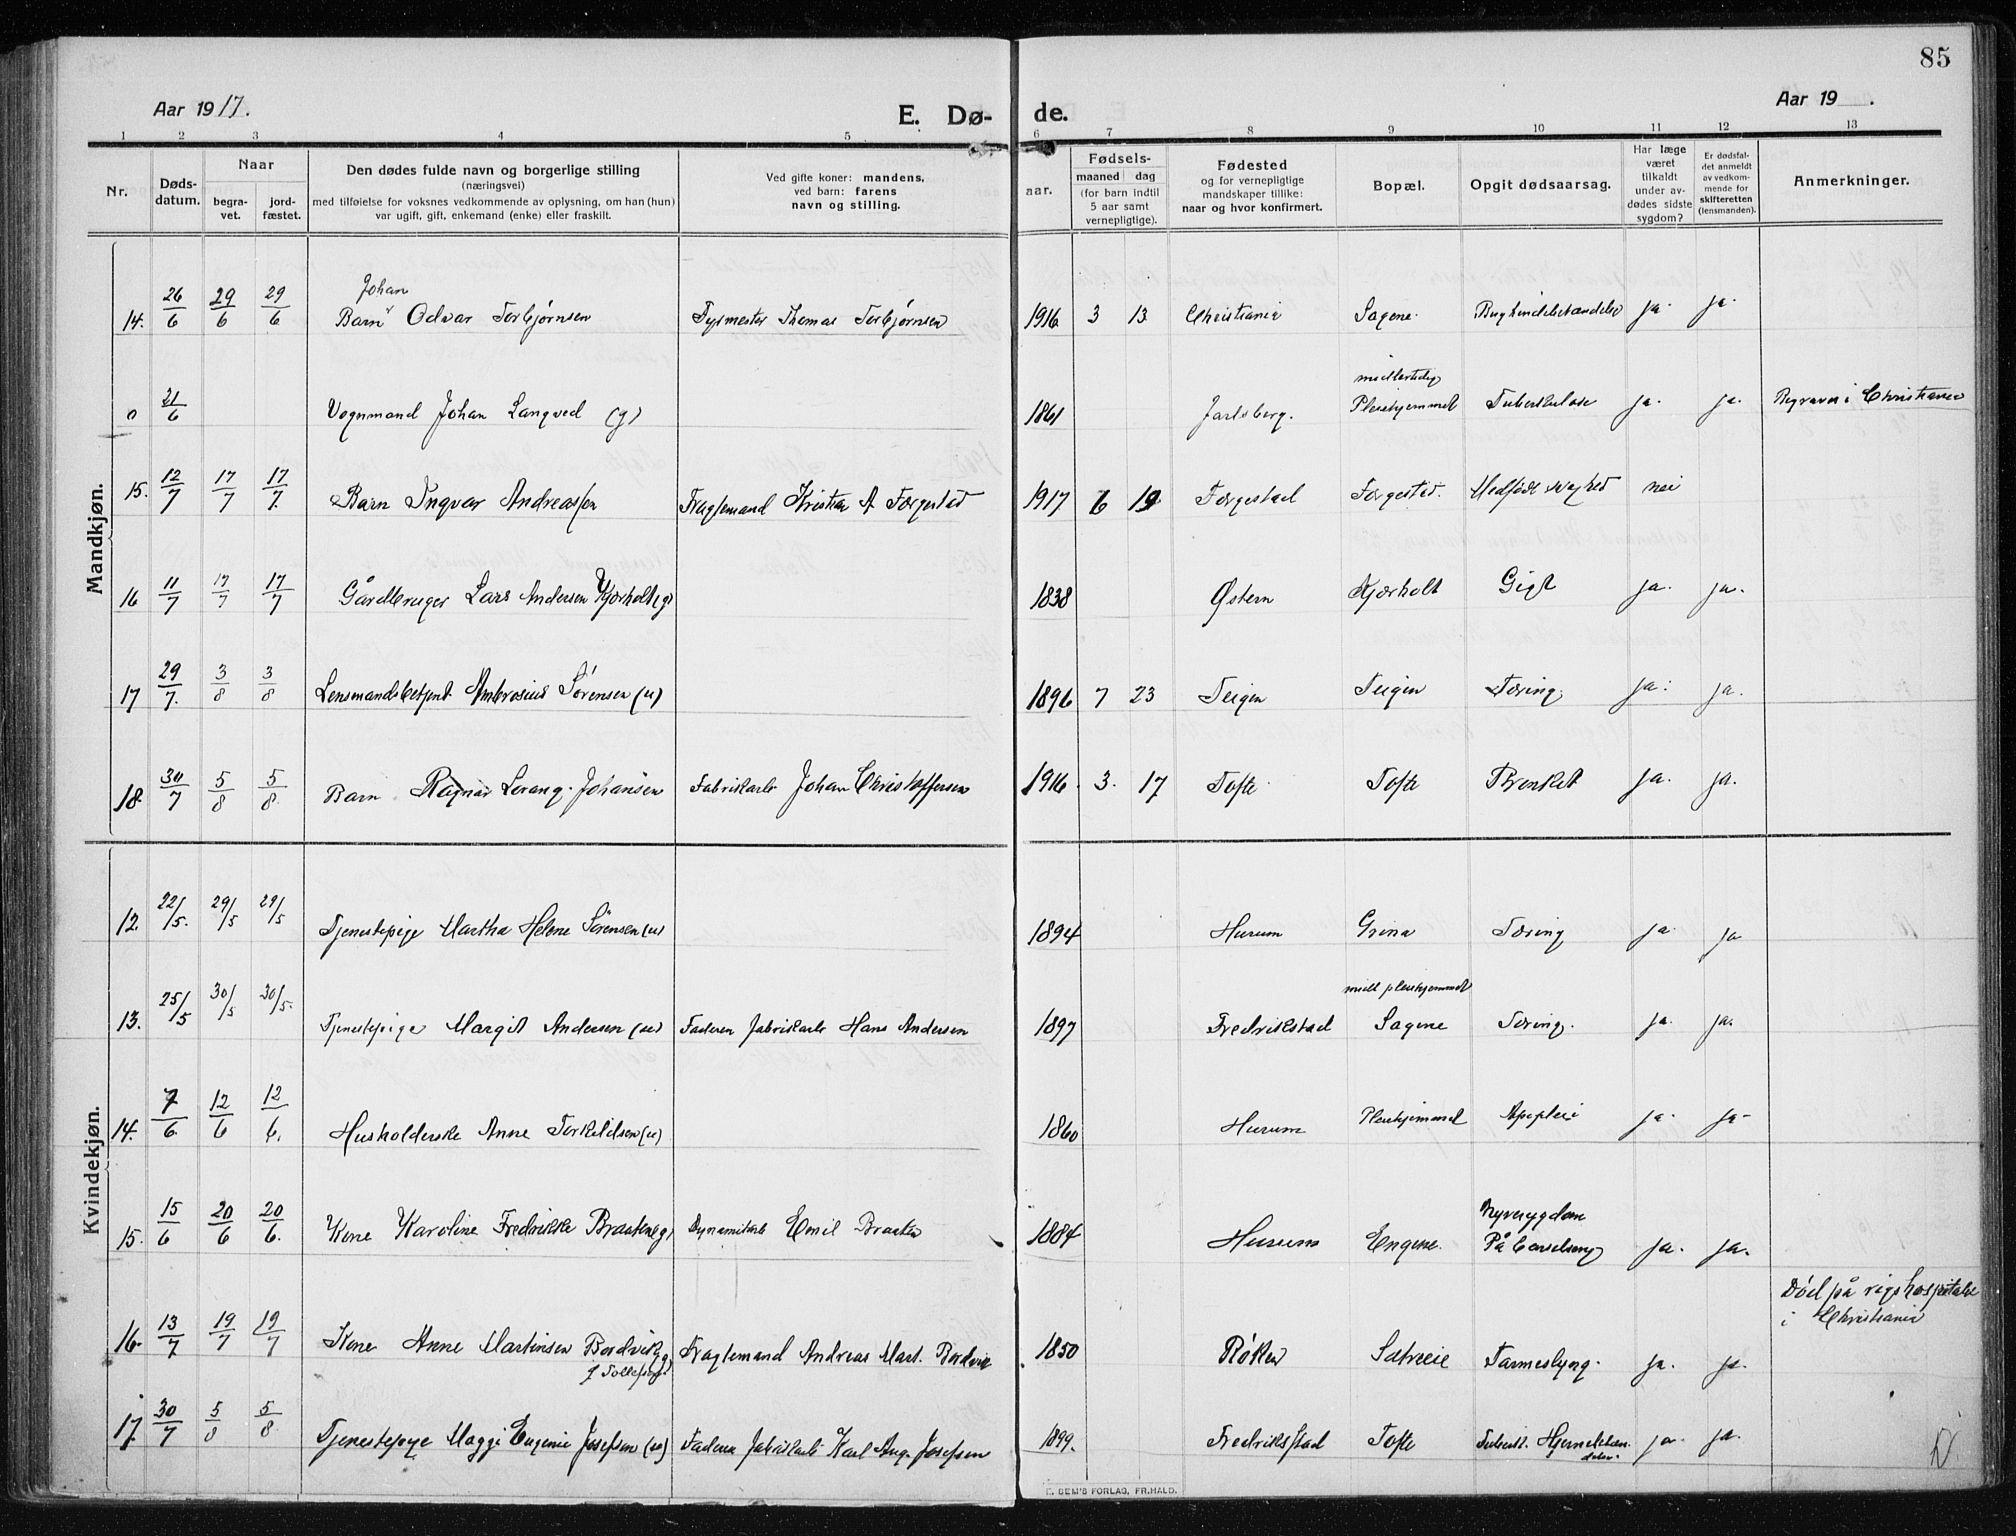 85
Aar 1917.
E. Dø-
de.
Aar 19 .
1 2 3 4 5 6 7 8 9 10 11 12 13
Nr.
Døds-
datum.
Naar
begra-
vet.
jord-
fæstet.
Den dødes fulde navn og borgerlige stilling
(næringsvei)
med tilføielse for voksnes vedkommende av oplysning, om han (hun)
var ugift, gift, enkemand (enke) eller fraskilt.
Ved gifte koner: mandens,
ved barn: farens
navn og stilling.
aar.
Fødsels-
maaned dag
(for barn indtil
5 aar samt
vernepligtige).
Fødested
og for vernepligtige
mandskaper tillike:
naar og hvor konfirmert.
Bopæl.
Opgit dødsaarsag.
Har læge
været
tilkaldt
under av-
dødes sidste
sygdom?
Er dødsfal-
det anmeldt
av vedkom-
mende for
skifteretten
(lensmanden).
Anmerkninger.
Mandkjøn.
Johan
14. 26/6 29/6 29/6 Barn Odvar Torbjørnsen Tysmester Thomas Torbjørnsen 1916 3 13 Christiania Sagene. ja. ja.
midlertidig
0 21/6 Vognmand Johan Langved (g) 1861 Jarlsberg. Pleiehjemmet Tuberkulose ja. ja. Begravet i Christiania
15. 12/7 17/7 17/7 Barn Ingvar Andreassen Fragtemand Kristian A Torgestad 1917 6 19 Torgestad Torgested. Medfødt svaghed nei
16 11/7 17/7 17/7 Gårdbruger Lars Andersen Kjærholt (g) 1838 Østern Kjærholt Gigt ja. ja.
17 29/7. 3/8 3/8 Lensmandsbetjent Ambrosius Sørensen (u) 1896 7 23 Teigen Teigen Tæring ja. ja.
18. 30/7 5/8 5/8. Barn Ragnar Lorang Johansen Fabrikarb. Johan Christoffersen 1916. 3. 17 Tofte Tofte Bronkit ja. ja.
Kvindekjøn.
12. 22/5. 29/5 29/5 Tjenestepige Martha Helene Sørensen (u) 1894 Hurum Grina Tæring ja. ja
midl pleiehjemmet
13. 25/5 30/5 30/5. Tjenestepige Margit Andersen (u) Faderen fabrikarb Hans Andersen 1897 Fredrikstad Sagene Tæring. ja. ja.
14. 7/6. 12/6 12/6. Husholderske Anne Torkildsen (u) 1860 Hurum Pleiehjemmet Apoplexi ja. ja.
Nyresygdom
15. 15/6 20/6 20/6. Kone Karoline Fredrikke Braaten (g) Dynamitarb Emil Braaten 1884 Hurum Engene. ja. ja.
Død på rigshospitalet
i Christiania
16. 13/7 19/7 19/7 Kone Anne Martinsen Bordvik (g) Fragtemand Andreas Mart. Bordvik 1850 Røken Sætreeie Tarmeslyng. ja. ja.
f Tollefsen
17. 30/7 5/8 5/8. Tjenestepige Maggi Eugenie Josefsen (u) Faderen fabrikarb Karl Aug. Josefsen 1899. Fredriksstad Tofte Tuberk. Hjernebetæn-
delse. ja. ja.
E. SEM'S FORLAG, FR.HALD.